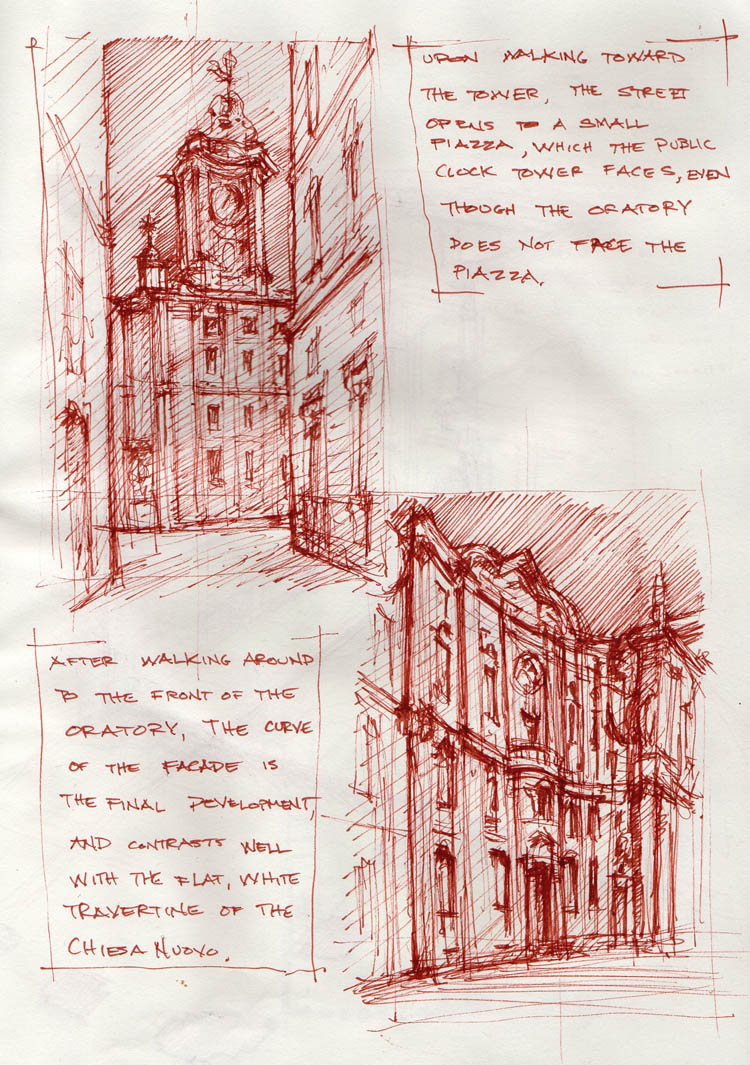 UPON WALKING TOWARD
THE TOWER, THE STREET
OPENS TO A SMALL
PIAZZA, WHICH THE PUBLIC
CLOCK TOWER FACES, EVEN
THOUGH THE ORATORY
DOES NOT FACE THE
PIAZZA.
AFTER WALKING AROUND
TO THE FRONT OF THE
ORATORY, THE CURVE
OF THE FACADE IS
THE FINAL DEVELOPMENT,
AND CONTRASTS WELL
WITH THE FLAT, WHITE
TRAVERTINE OF THE
CHIESA NUOVO.